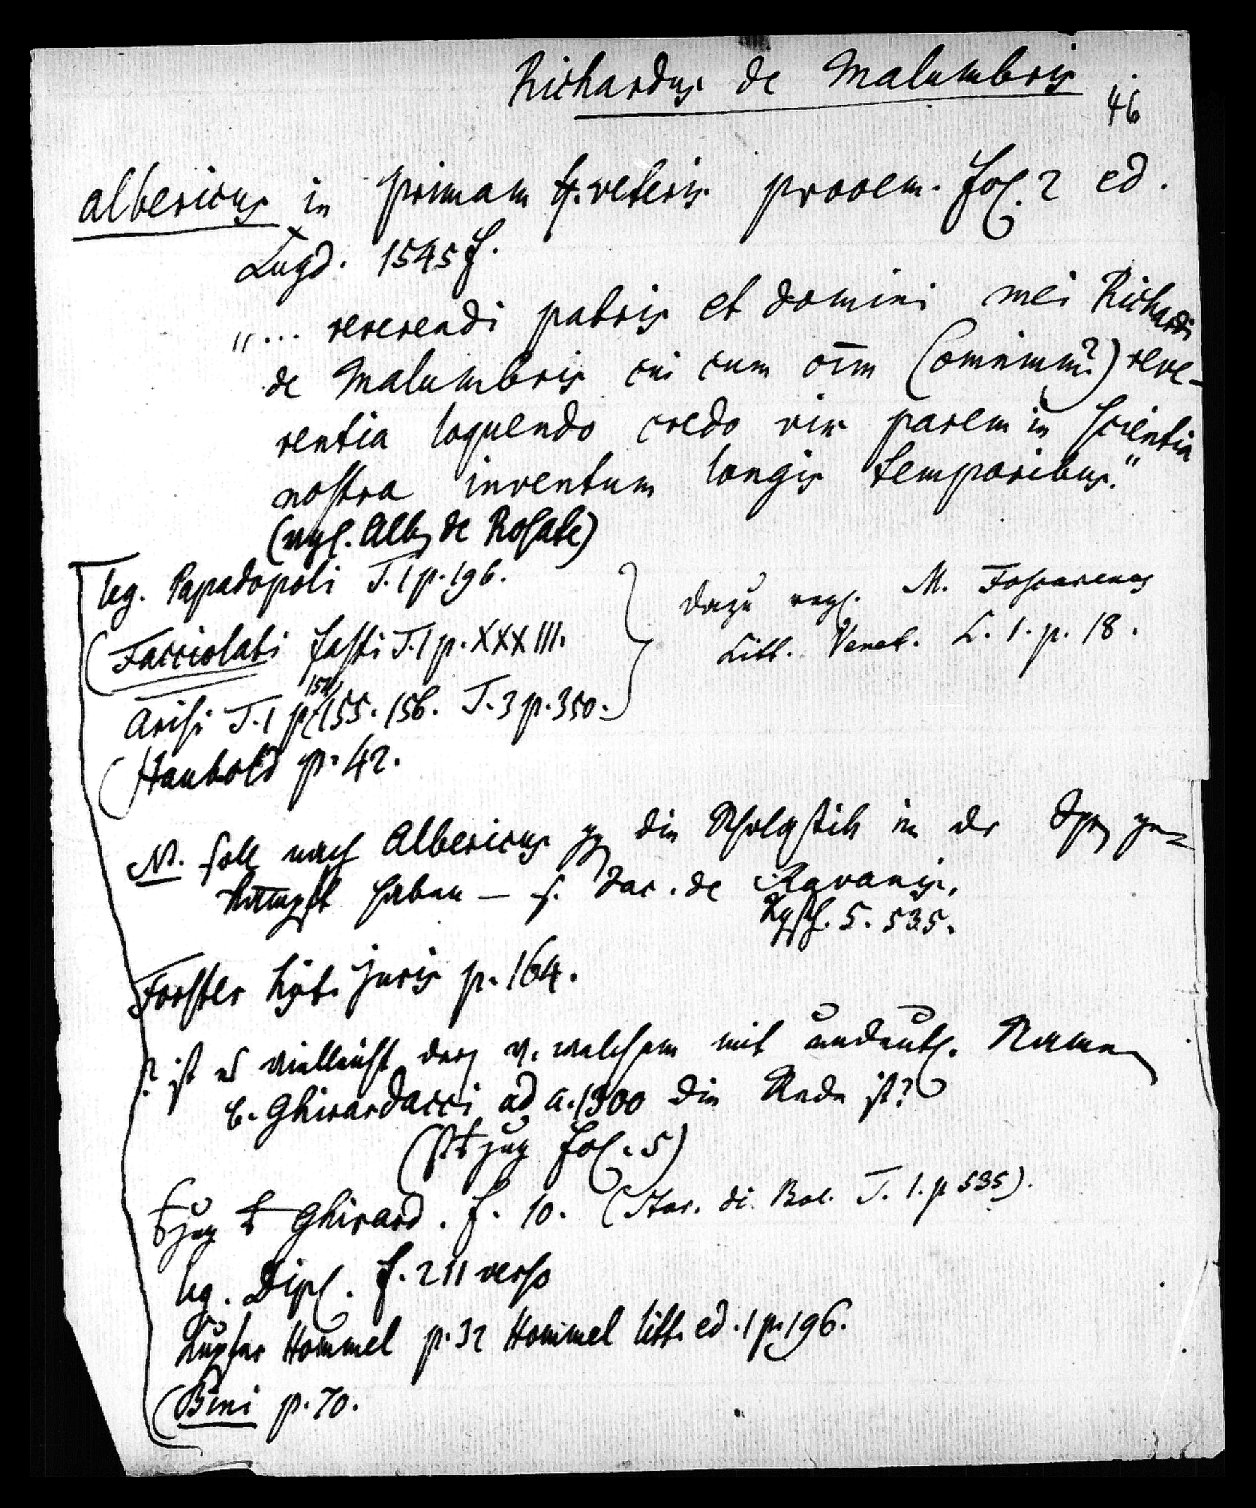 Richardus de Malumbris
46
Albericus in primam ff. veteris prooem. fol. 2 ed.
Lugd. 1545 f.
„... reverendi patris et domini mei Richardi
de Malumbris cui cum oīm (omnimm?) reve-
rentia loquendo credo vix parem in scientia
nostra inventum longis temporibus."
(vgl. Alb. de Rosate)
leg. Papadopoli T. 1 p. 196.
dazu vergl. M. Foscarenus
Litt. Venet. L. 1. p. 18.
(Facciolati fasti T. 1 p. XXXIII.
Arisi T. 1 p. 154 155. 156. T. 3 p. 350.
(Haubold p. 42.
NB. soll nach Albericus die Scholastik in der ge-
kämpft haben — s. Jac. de Ravanis.
S. 535.
Forster hist. juris p. 164.
? ist es vielleicht der v. welchem mit undeutl. Namen
b. Ghirardacci ad a. 1300 die Rede ist?
fol. 5)
Ghirard. f. 10. (Stor. di Bol. T. 1. p 535).
leg. Dipl. f. 211 verso
Hommel p. 32 Hommel litt. ed. 1 p. 196.
(Bini p. 70.